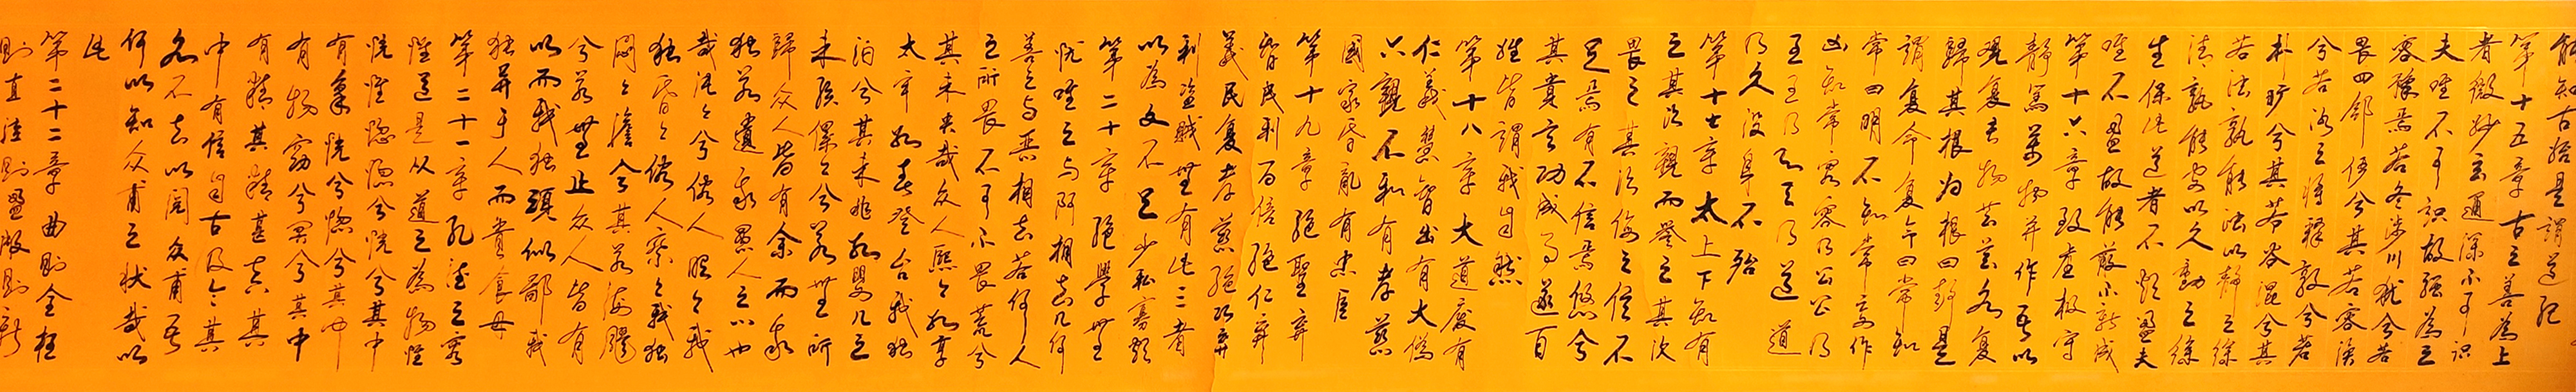 能知古始是謂道紀
第十五章古之善為上
者微妙玄通深不可識
夫唯不可識故強為之
容豫焉若冬涉川猶兮若
畏四鄰儼兮其若容渙
兮若冰之將釋敦兮若
朴曠兮其若谷混兮其
若濁孰能濁以靜之徐
清孰能安以久動之徐
生保此道者不欲盈夫
唯不盈故能蔽不新成
第十六章致虛極守
靜篤萬物并作吾以
觀復夫物芸芸各復
歸其根歸根曰靜是
謂復命復命曰常知
常曰明不知常妄作
凶知常容容乃公公乃
王王乃天天乃道道
乃久沒身不殆
第十七章太上下知有
之其次親而譽之其次
畏之其次侮之信不
足焉有不信焉悠兮
其貴言功成事遂百
姓皆謂我自然
第十八章大道廢有
仁義慧智出有大偽
六親不和有孝慈
國家昏亂有忠臣
第十九章絕聖棄
智民利百倍絕仁棄
義民復孝慈絕巧棄
利盜賊無有此三者
以為文不足少私寡欲
第二十章絕學無
憂唯之与阿相去几何
善之与惡相去若何人
之所畏不可不畏荒兮
其未央哉众人熙熙如享
太牢如春登台我独
泊兮其未兆如嬰兒之
未孩儽儽兮若無所
歸众人皆有余而我
独若遺我愚人之心也
哉沌沌兮俗人昭昭我
独昏昏俗人察察我独
悶悶澹兮其若海飂
兮若無止众人皆有
以而我独頑似鄙我
独异于人而貴食母
第二十一章孔德之容
惟道是从道之為物惟
恍惟惚惚兮恍兮其中
有象恍兮惚兮其中
有物窈兮冥兮其中
有精其精甚真其
中有信自古及今其
名不去以閱众甫吾
何以知众甫之狀哉以
此
第二十二章曲則全枉
則直洼則盈敝則新